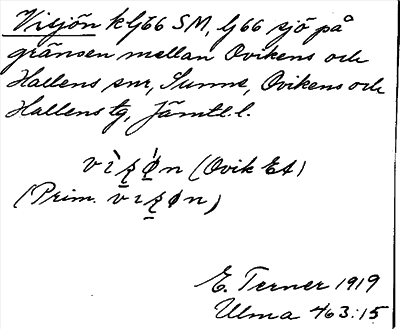 Visjön kG66 SM, G66 sjö på
gränsen mellan Ovikens och
Hallens snr, Sunne, Ovikens och
Hallens tg, Jämtl. l.
(Ovik Et)
(Prim.
E. Terner 1919
Ulma 463:15